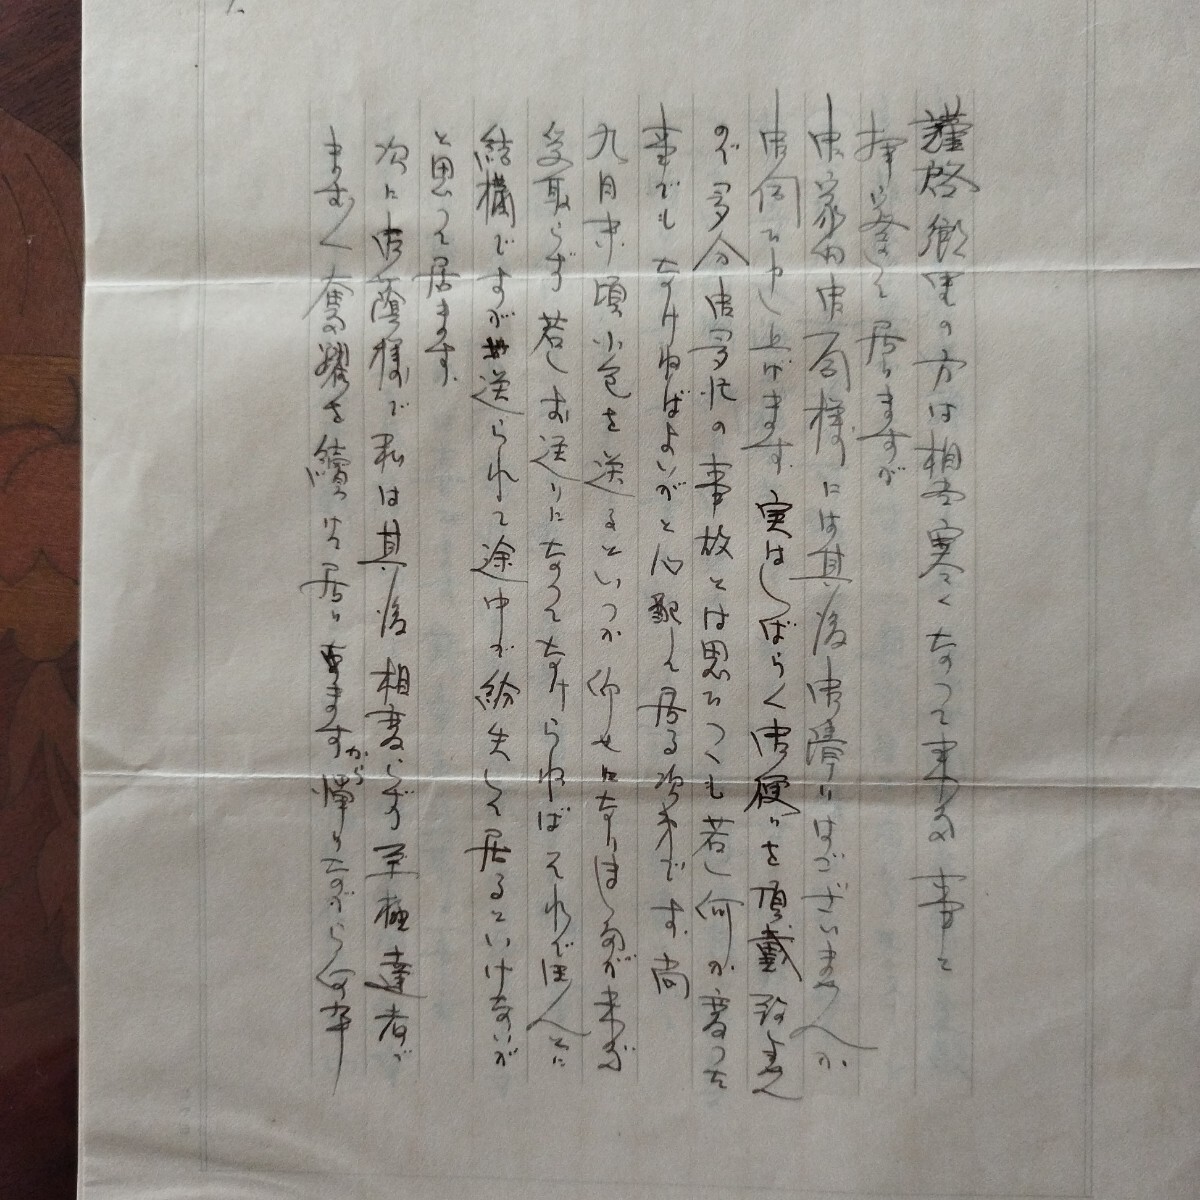 謹啓 郷里の方は相当寒くなって来た事と
拝察して居りますが
御家内御一同様には其後御障りはございませんか
御伺ひ申し上げます。実はしばらく御便りを頂戴致しません
ので多分御多忙の事故とは思ひつゝも若し何か変った
事でもなければよいがと心配して居る次第です。尚
九月末頃小包を送るといつか仰せになりましたが未だ
受取らず 若しお送りになってなければそれで
結構ですが 送られて途中で紛失して居るといけないが
と思って居ます。
次に御蔭様で私は其後相変らず至極達者で
ます〱奮躍を続けて居りますから憚りながら何卒